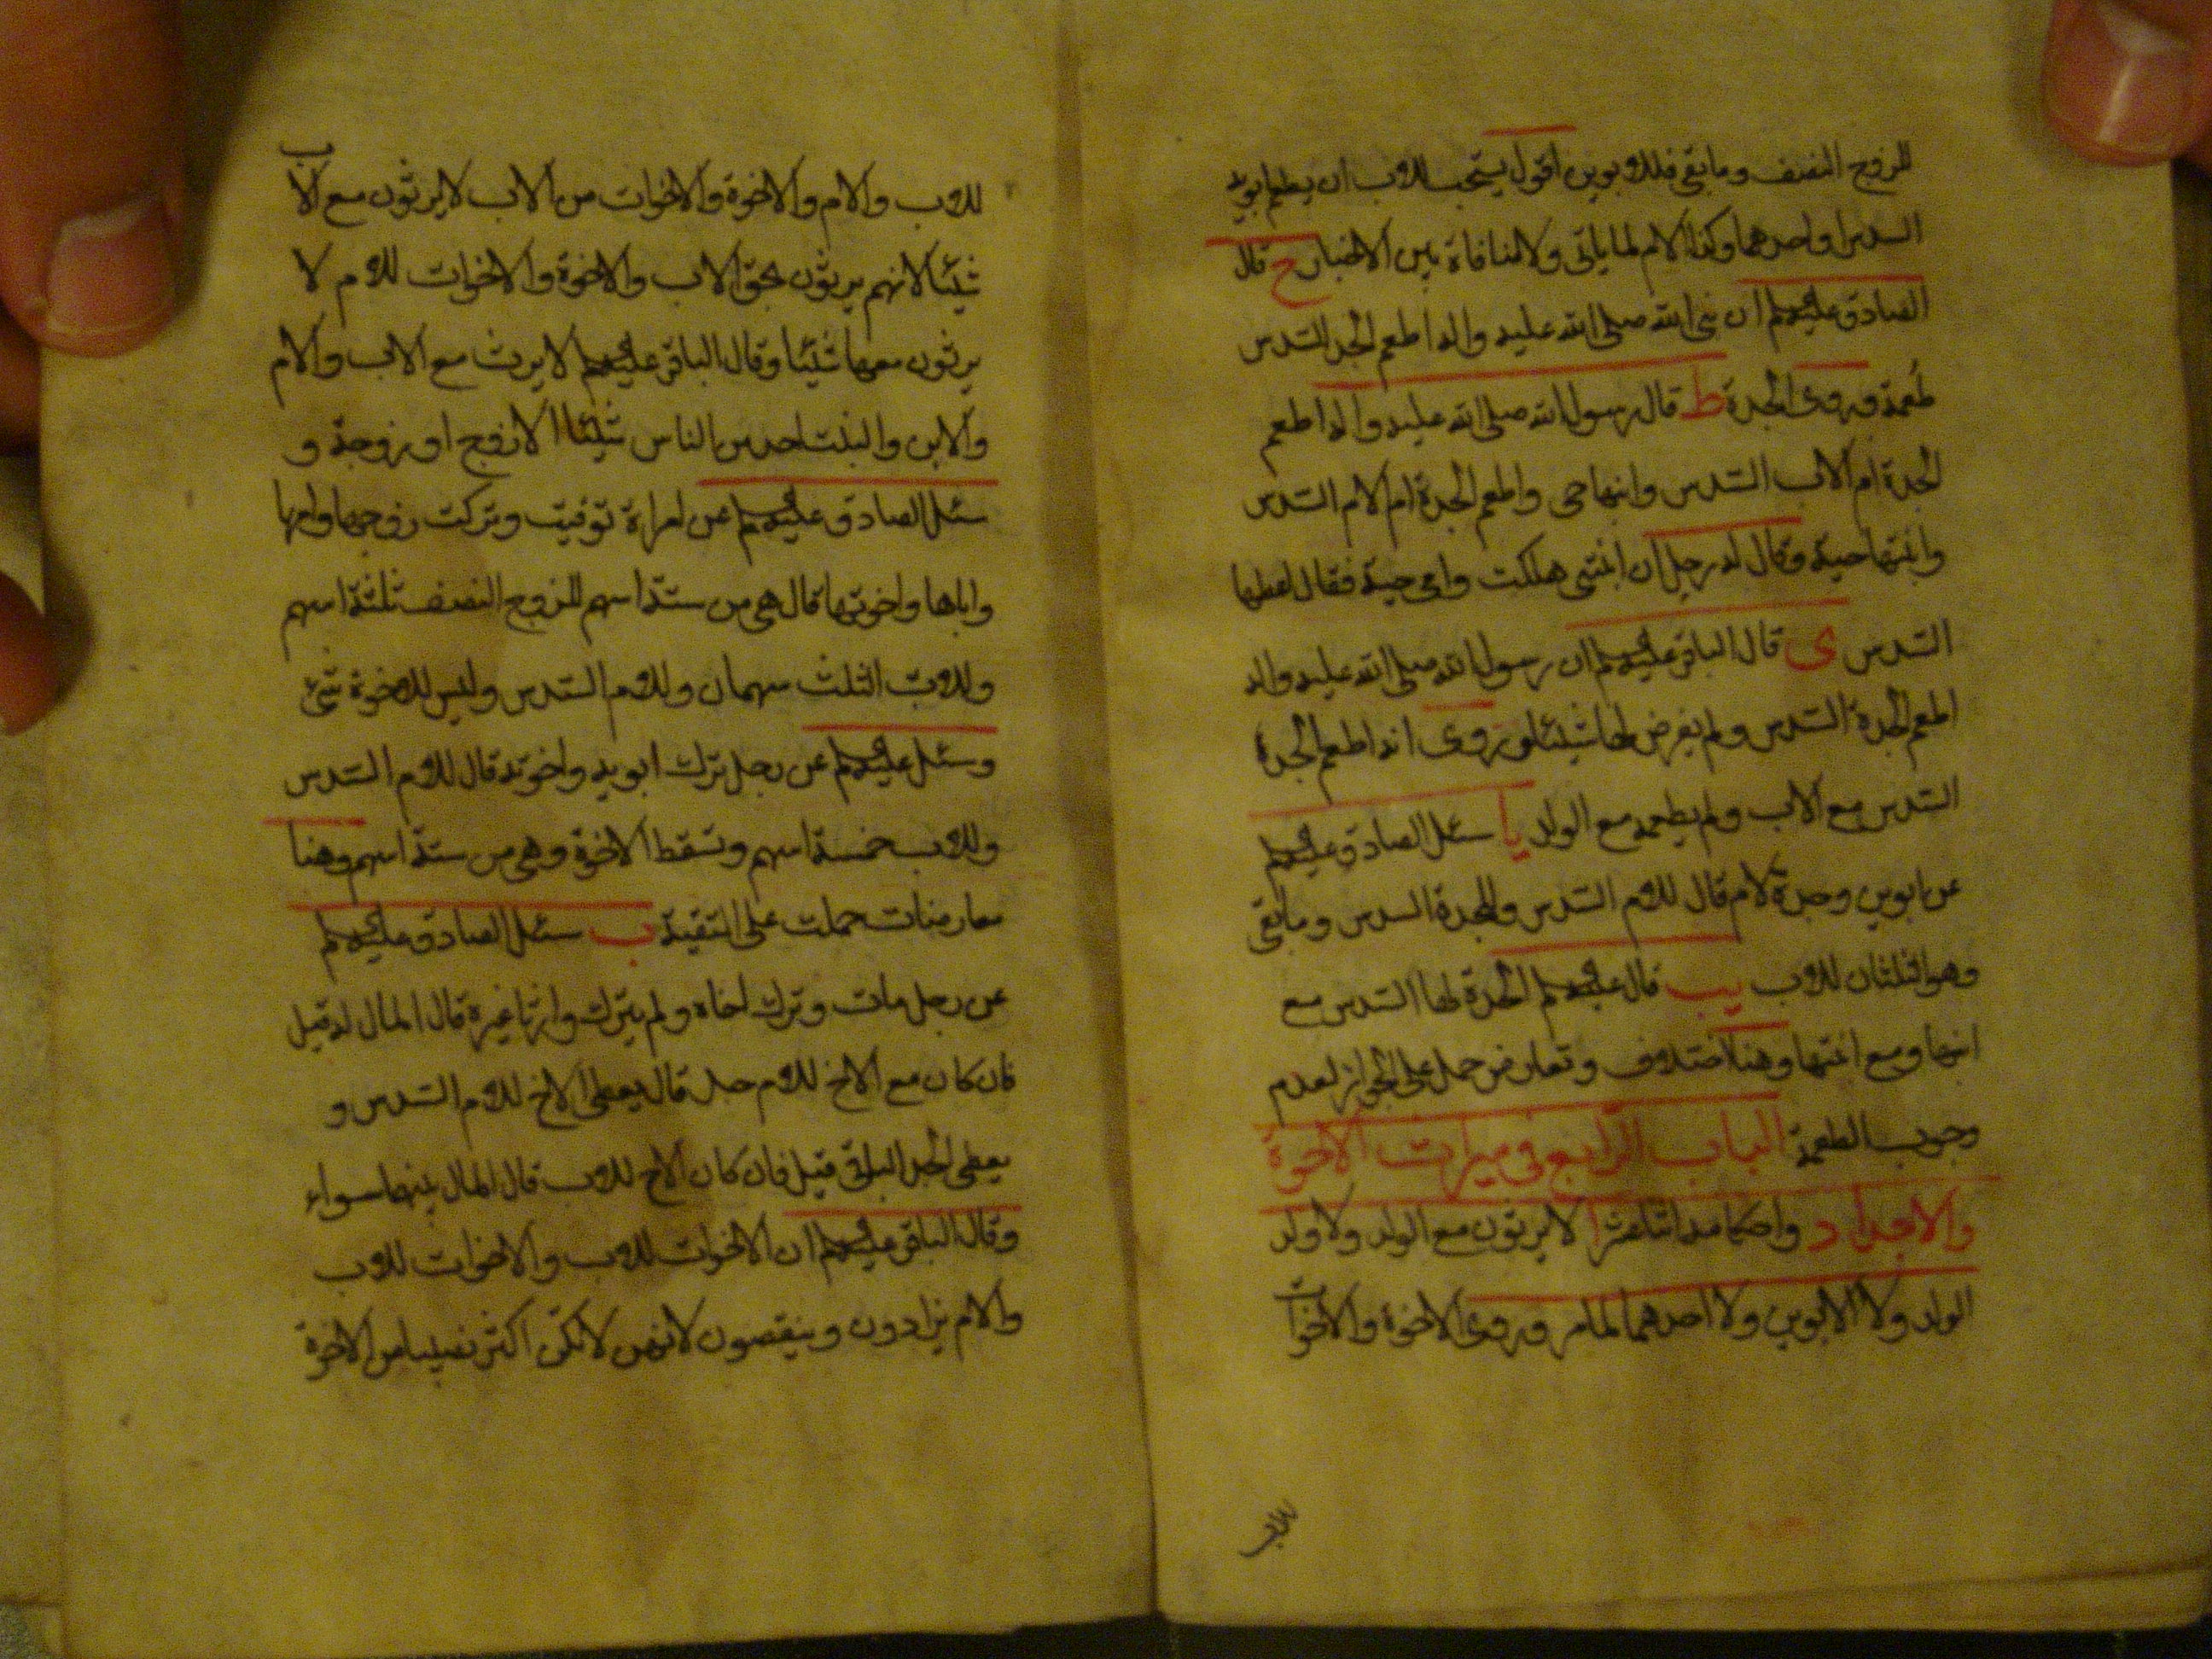 للزوج النصف وما بقي فللابوين اقول يستحب للاب ان يطعم ابويه
السدس او احدهما وكذا الام لما ياتي ولا منافاة بين الاخبار ح قال
الصادق عليه السلم ان نبي الله صلى الله عليه واله اطعم الجد السدس
طعمة وروى الجدة ط قال رسول الله صلى الله عليه واله اطعم
الجدة ام الاب السدس وابنها حي واطعم الجدة ام الام السدس
وابنتها حية وقال له رجل ان ابنتي هلكت وامي حية فقال اعطها
السدس ى قال الباقر عليه السلم ان رسول الله صلى الله عليه واله
اطعم الجدة السدس ولم يفرض لها شيئا وروى انه اطعم الجدة
السدس مع الاب ولم يطعمه مع الولد يا سئل الصادق عليه السلم
عن ابوين وجدة لام قال للام السدس وللجدة السدس وما بقي
وهو الثلثان للاب يب قال عليه السلم الجدة لها السدس مع
ابنها ومع ابنتها وهنا اختلاف وتعارض حمل على الجواز لعدم
وجوب الطعمة الباب الرابع في ميراث الاخوة
والاجداد واحكامه اثنا عشر ا لا يرثون مع الولد ولا ولد
الولد ولا الابوين ولا احدهما لما مر وروى الاخوة والاخوات
للاب والام والاخوة والاخوات من الاب لا يرثون مع الاب
شيئا لانهم يرثون بحق الاب والاخوة والاخوات للام لا
يرثون معها شيئا وقال الباقر عليه السلم لا يرث مع الاب والام
والابن والبنت احد من الناس شيئا الا زوج او زوجة و
سئل الصادق عليه السلم عن امراة توفيت وتركت زوجها وامها
واباها واخوتها قال هي من ستة اسهم للزوج النصف ثلثة اسهم
وللاب الثلث سهمان وللام السدس وليس للاخوة شئ
وسئل عليه السلم عن رجل ترك ابويه واخوته قال للام السدس
وللاب خمسة اسهم وتسقط الاخوة وهي من ستة اسهم وهنا
معارضات حملت على التقية ب سئل الصادق عليه السلم
عن رجل مات وترك اخاه ولم يترك وارثا غيره قال المال له قيل
فان كان مع الاخ للام جد قال يعطى الاخ للام السدس و
يعطى الجد الباقي قيل فان كان الاخ للاب قال المال بينهما سواء
وقال الباقر عليه السلم ان الاخوات للاب والاخوات للاب
والام يزادون وينقصون لانهن لا تكن اكثر نصيبا من الاخوة